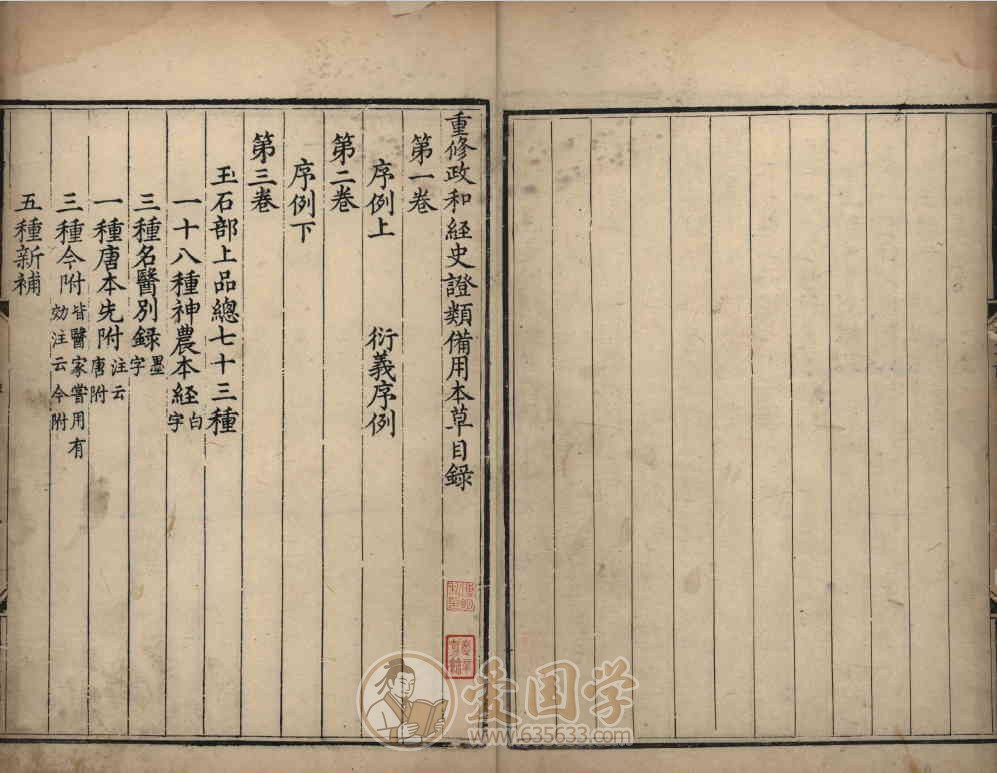 重修政和經史證類備用本草目錄
第一卷
序例上 衍義序例
第二卷
序例下
第三卷
玉石部上品總七十三種
一十八種神農本経 白字
三種名醫別録 墨字
一種唐本先附 注云唐附
三種今附 皆醫家嘗用有効注云今附
五種新補
爱国学
www.635633.com